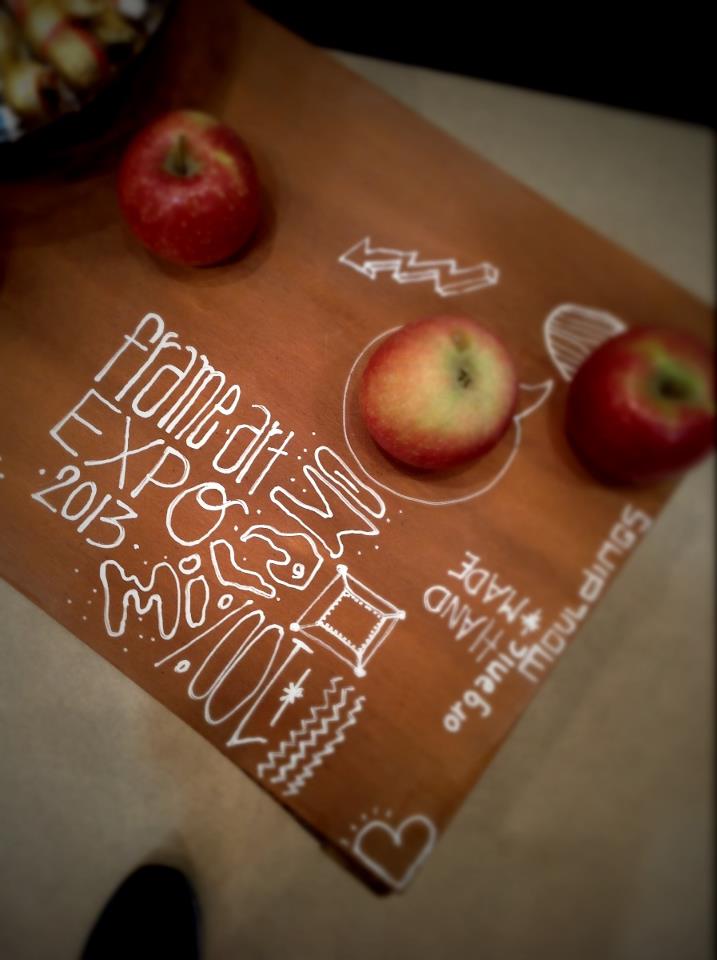 frame.art
EXPO
2013.
100%
HAND
MADE
organic +
MOULDINGS